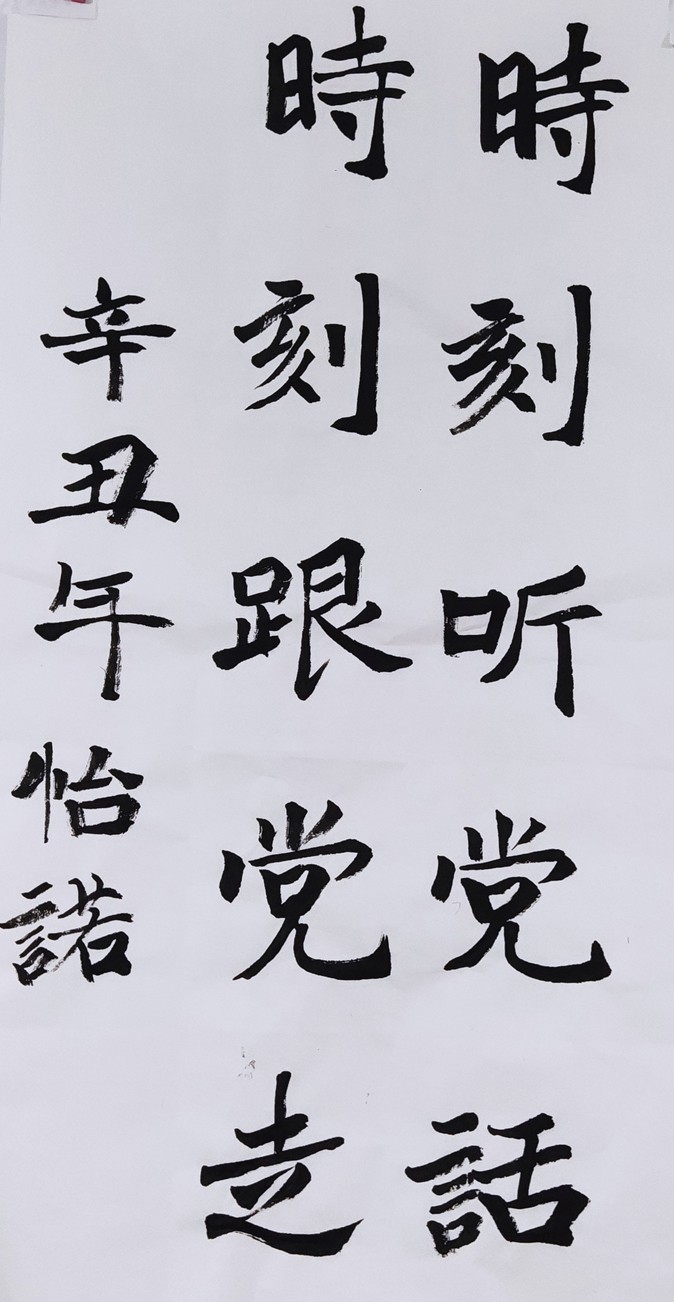 時刻听党話
時刻跟党走
辛丑年怡諾